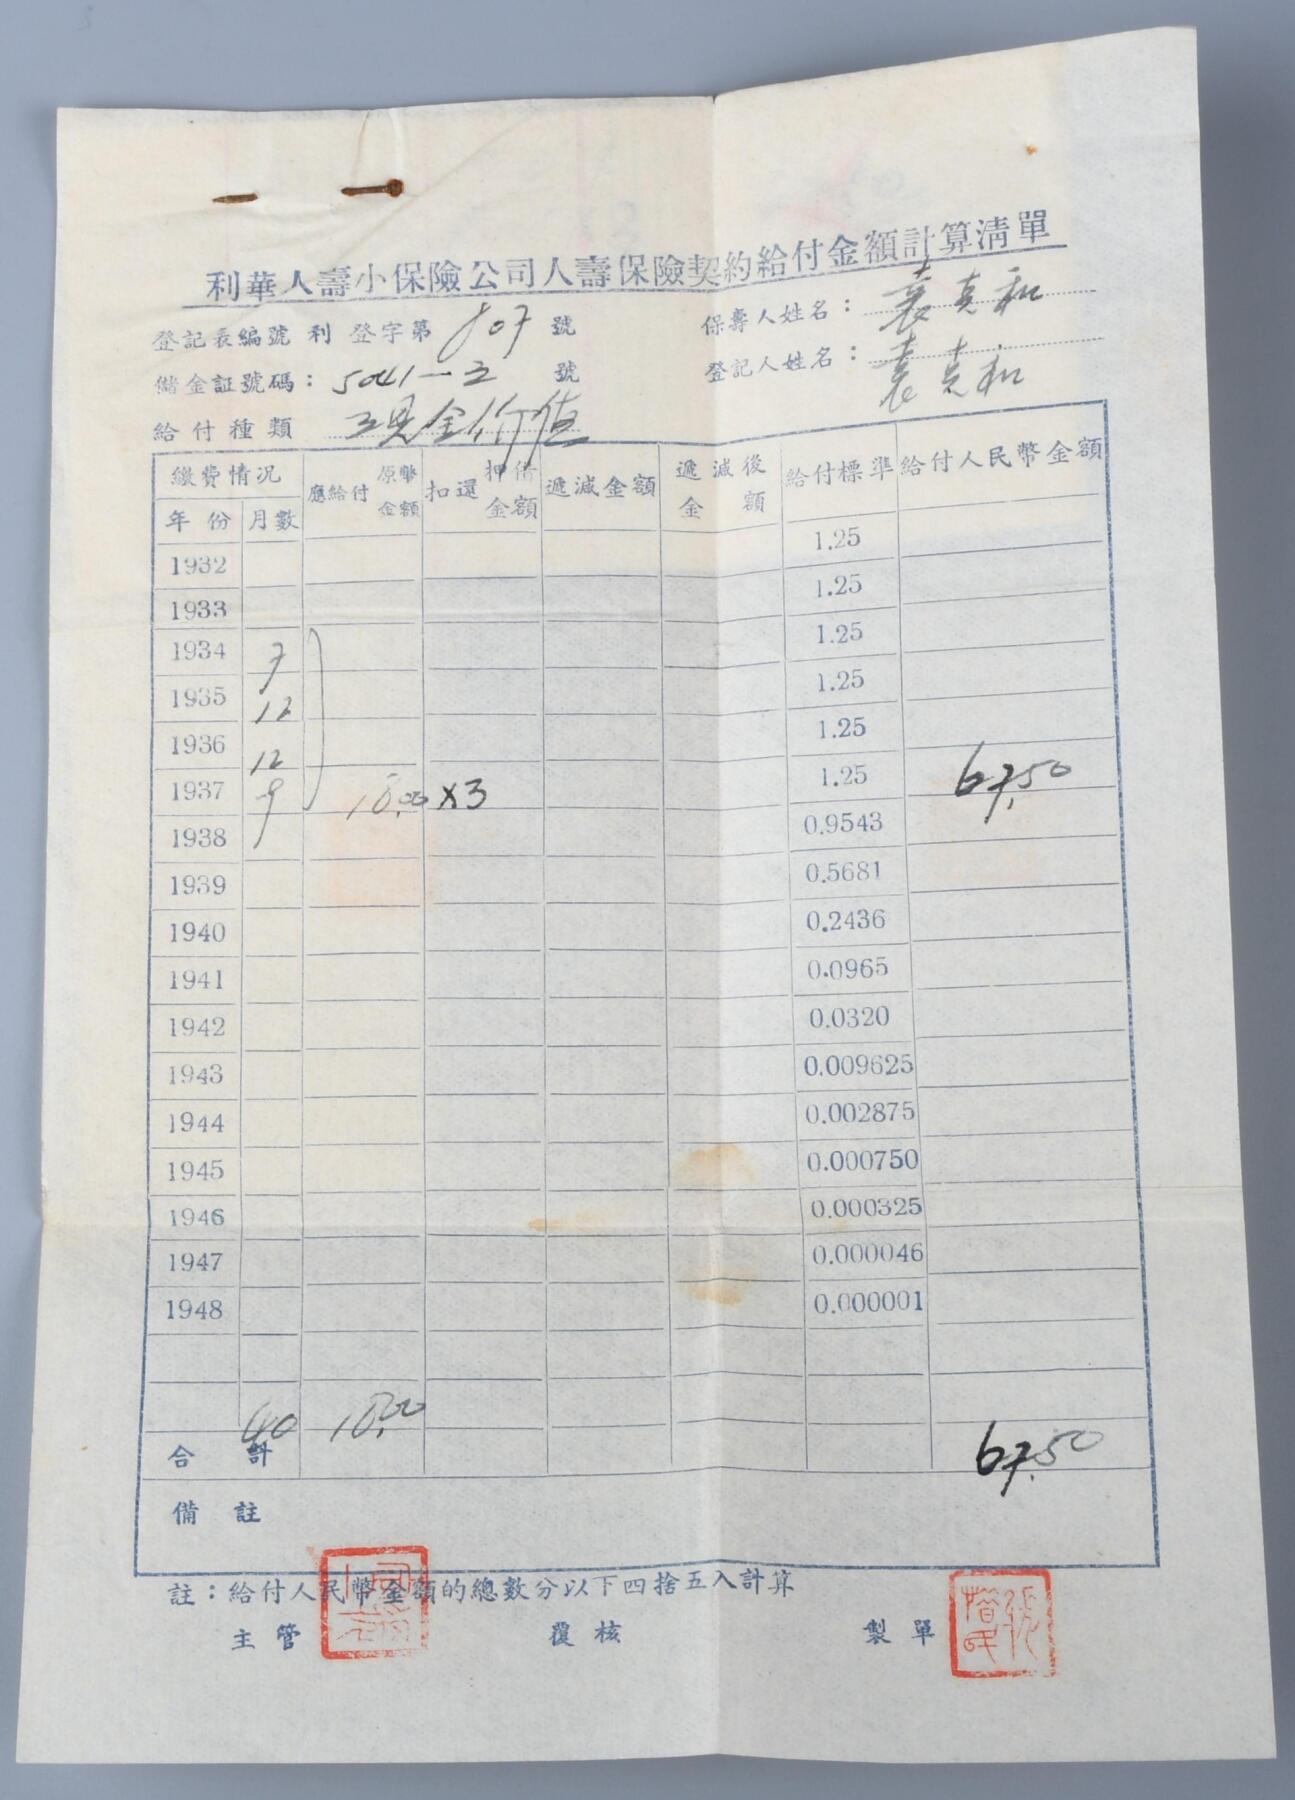 利華人壽小保險公司人壽保險契約給付金額計算清單
登記表編號 利 登字第 807 號
保壽人姓名： 袁克和
儲金証號碼： 5041-3 號
登記人姓名： 袁克和
給付種類 現金价值
繳費情況 應給付原幣金額 扣還押借金額 遞減金額 遞減後金額 給付標準 給付人民幣金額
年份 月數
1932 1.25
1933 1.25
1934 7 1.25
1935 12 1.25
1936 12 1.25
1937 9 18.00 ×3 1.25 67.50
1938 0.9543
1939 0.5681
1940 0.2436
1941 0.0965
1942 0.0320
1943 0.009625
1944 0.002875
1945 0.000750
1946 0.000325
1947 0.000046
1948 0.000001
合計 40 18.00 67.50
備註
註：給付人民幣金額的總數分以下四捨五入計算
主管 覆核 製單